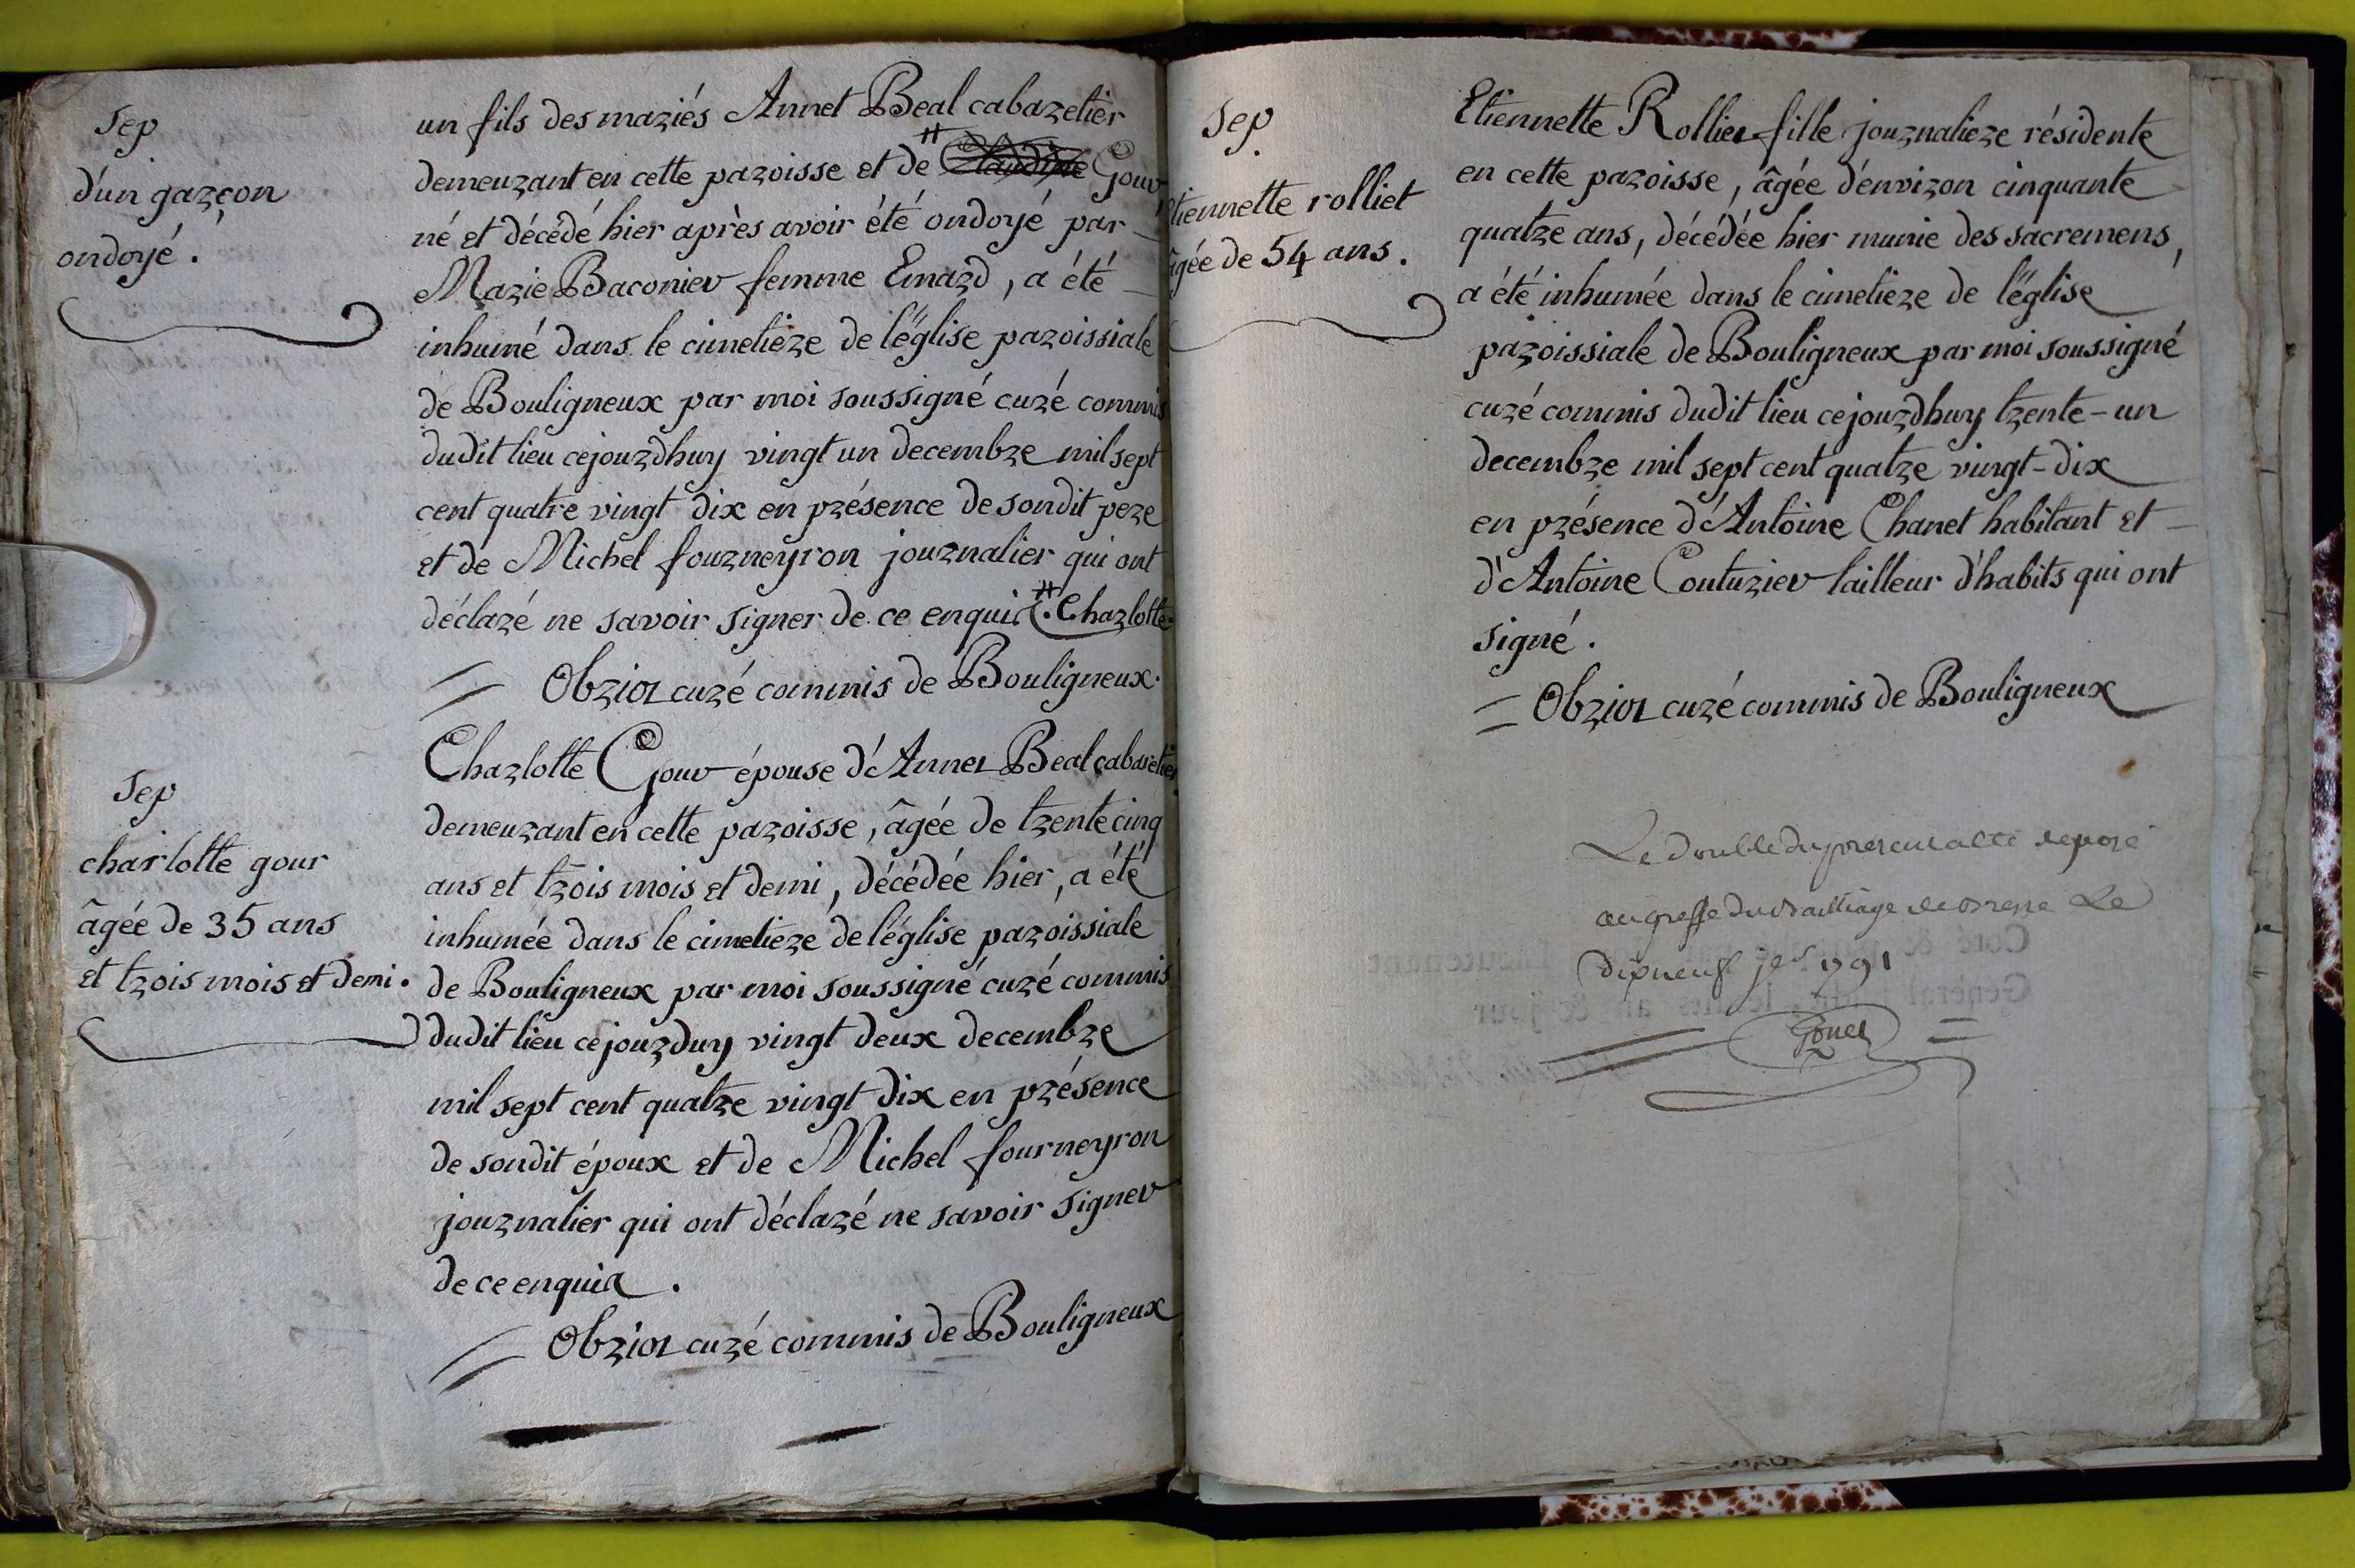 Sep
d'un garçon
ondoyé.
un fils des mariés Annet Beal cabaretier
demeurant en cette paroisse et de # Claudine Gour
né et décédé hier après avoir été ondoyé par
Marie Baconier femme Emard, a été
inhumé dans le cimetiere de l'église paroissiale
de Bouligneux par moi soussigné curé commis
dudit lieu cejourdhuy vingt un decembre mil sept
cent quatre vingt dix en présence de sondit pere
et de Michel fourneyron journalier qui ont
déclaré ne savoir signer de ce enquis. # Charlotte.
Obrier curé commis de Bouligneux.
Sep
charlotte gour
âgée de 35 ans
et trois mois et demi.
Charlotte Gour épouse d'Annet Beal cabaretier
demeurant en cette paroisse, âgée de trente cinq
ans et trois mois et demi, décédée hier, a été
inhumée dans le cimetiere de l'église paroissiale
de Bouligneux par moi soussigné curé commis
dudit lieu cejourduy vingt deux decembre
mil sept cent quatre vingt dix en présence
de sondit époux et de Michel fourneyron
journalier qui ont déclaré ne savoir signer
de ce enquis.
Obrier curé commis de Bouligneux
Sep.
Etiennette rolliet
âgée de 54 ans.
Etiennette Rolliet fille journaliere résidente
en cette paroisse, âgée d'environ cinquante
quatre ans, décédée hier munie des sacremens,
a été inhumée dans le cimetiere de l'église
paroissiale de Bouligneux par moi soussigné
curé commis dudit lieu cejourdhuy trente-un
decembre mil sept cent quatre vingt-dix
en présence d'Antoine Chanet habitant et
d'Antoine Couturier tailleur d'habits qui ont
signé.
Obrier curé commis de Bouligneux
Le double du present a été deposé
au greffe du Bailliage de Bresse Le
dixneuf jer 1791